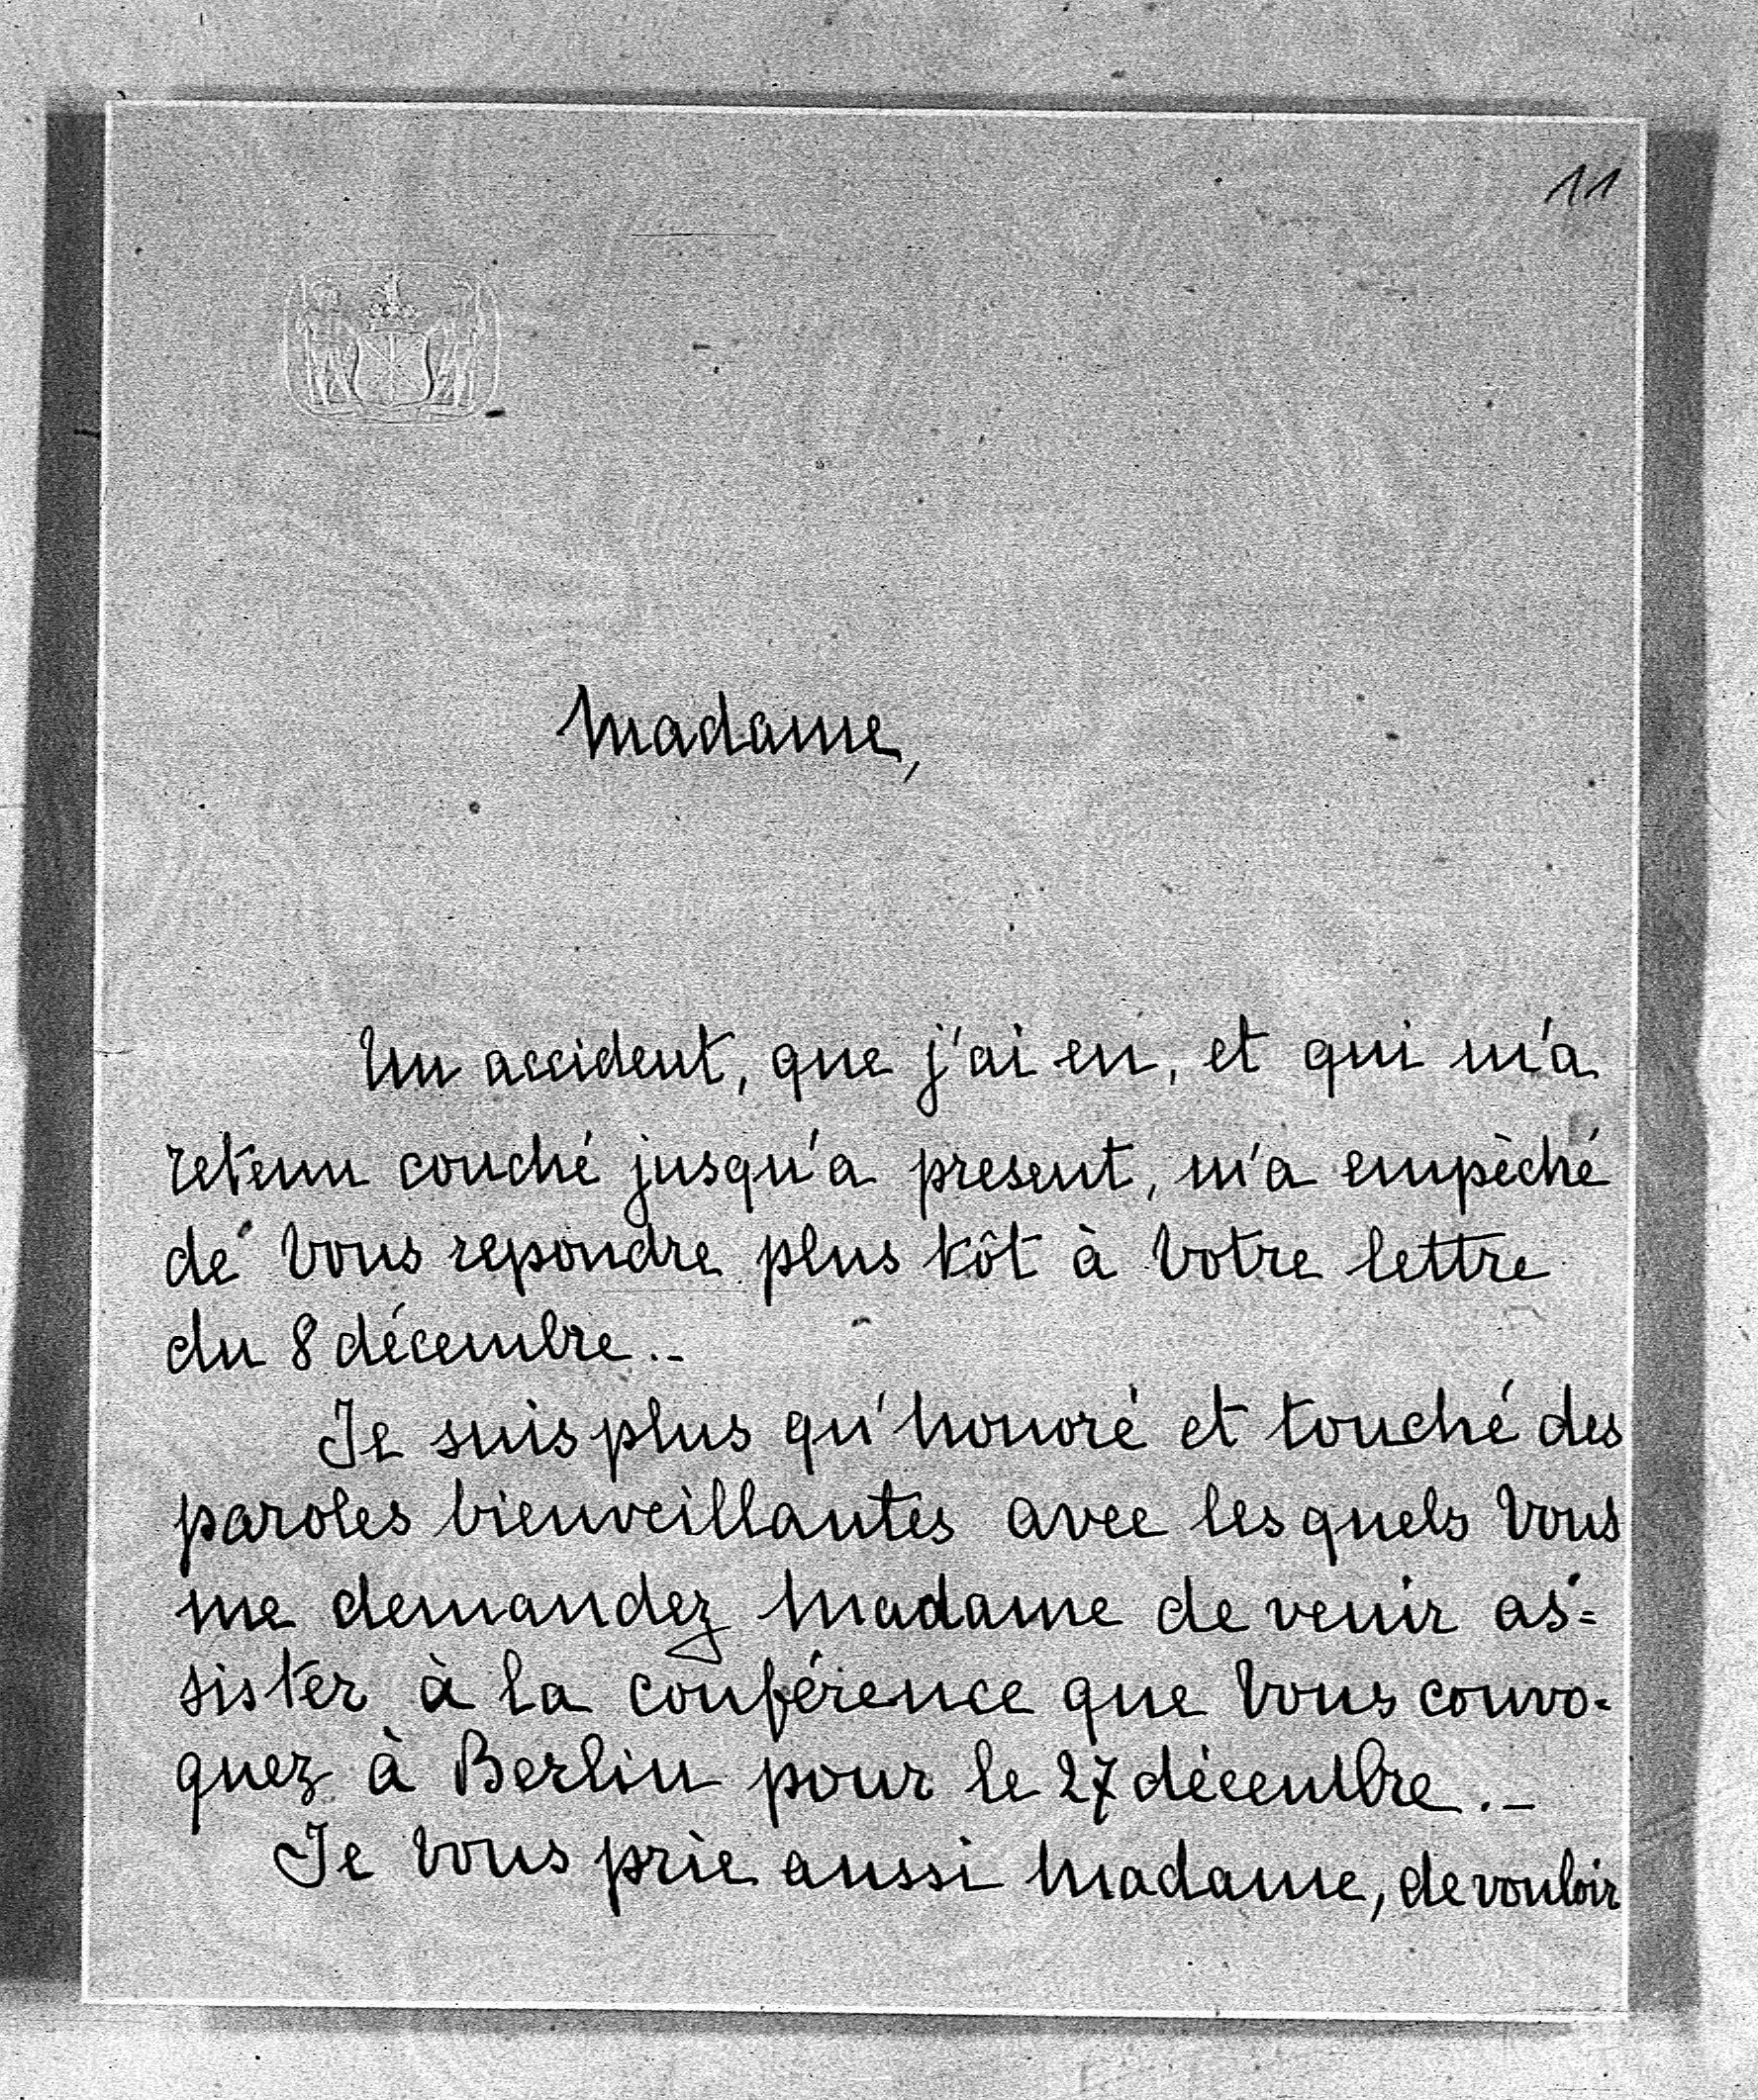 11
Madame,
Un accident, que j'ai eu, et qui m'a
retenu couché jusqu'a present, m'a empèché
de vous repondre plus tôt à Votre lettre
du 8 décembre. -
Je suis plus qu'honoré et touché des
paroles bienveillantes avec les quels Vous
me demandez Madame de venir as=
sister à la conférence que Vous convo-
quez à Berlin pour le 27 décembre. -
Je vous prie aussi Madame, de vouloir